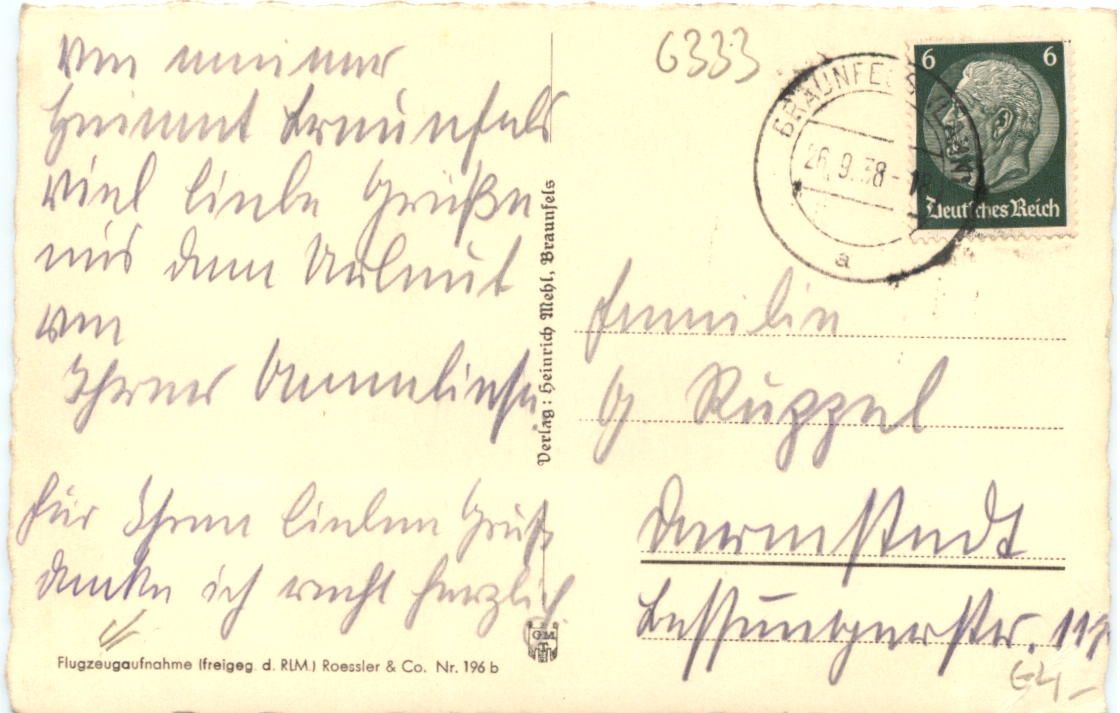 Von meiner
Heimat Braunfels
viel liebe Grüße
aus dem Urlaub
von
Ihrer Anneliese.
Für Ihren lieben Gruß
danke ich recht herzlich
Flugzeugaufnahme (freigeg. d. RLM.) Roessler & Co. Nr. 196 b
Verlag: Heinrich Mehl, Braunfels
GM
6333
BRAUNFELS (LAHN)
26.9.38-18
a
6 6
Deutsches Reich
Familie
G. Rüppel
Darmstadt
Bessungerstr. 117